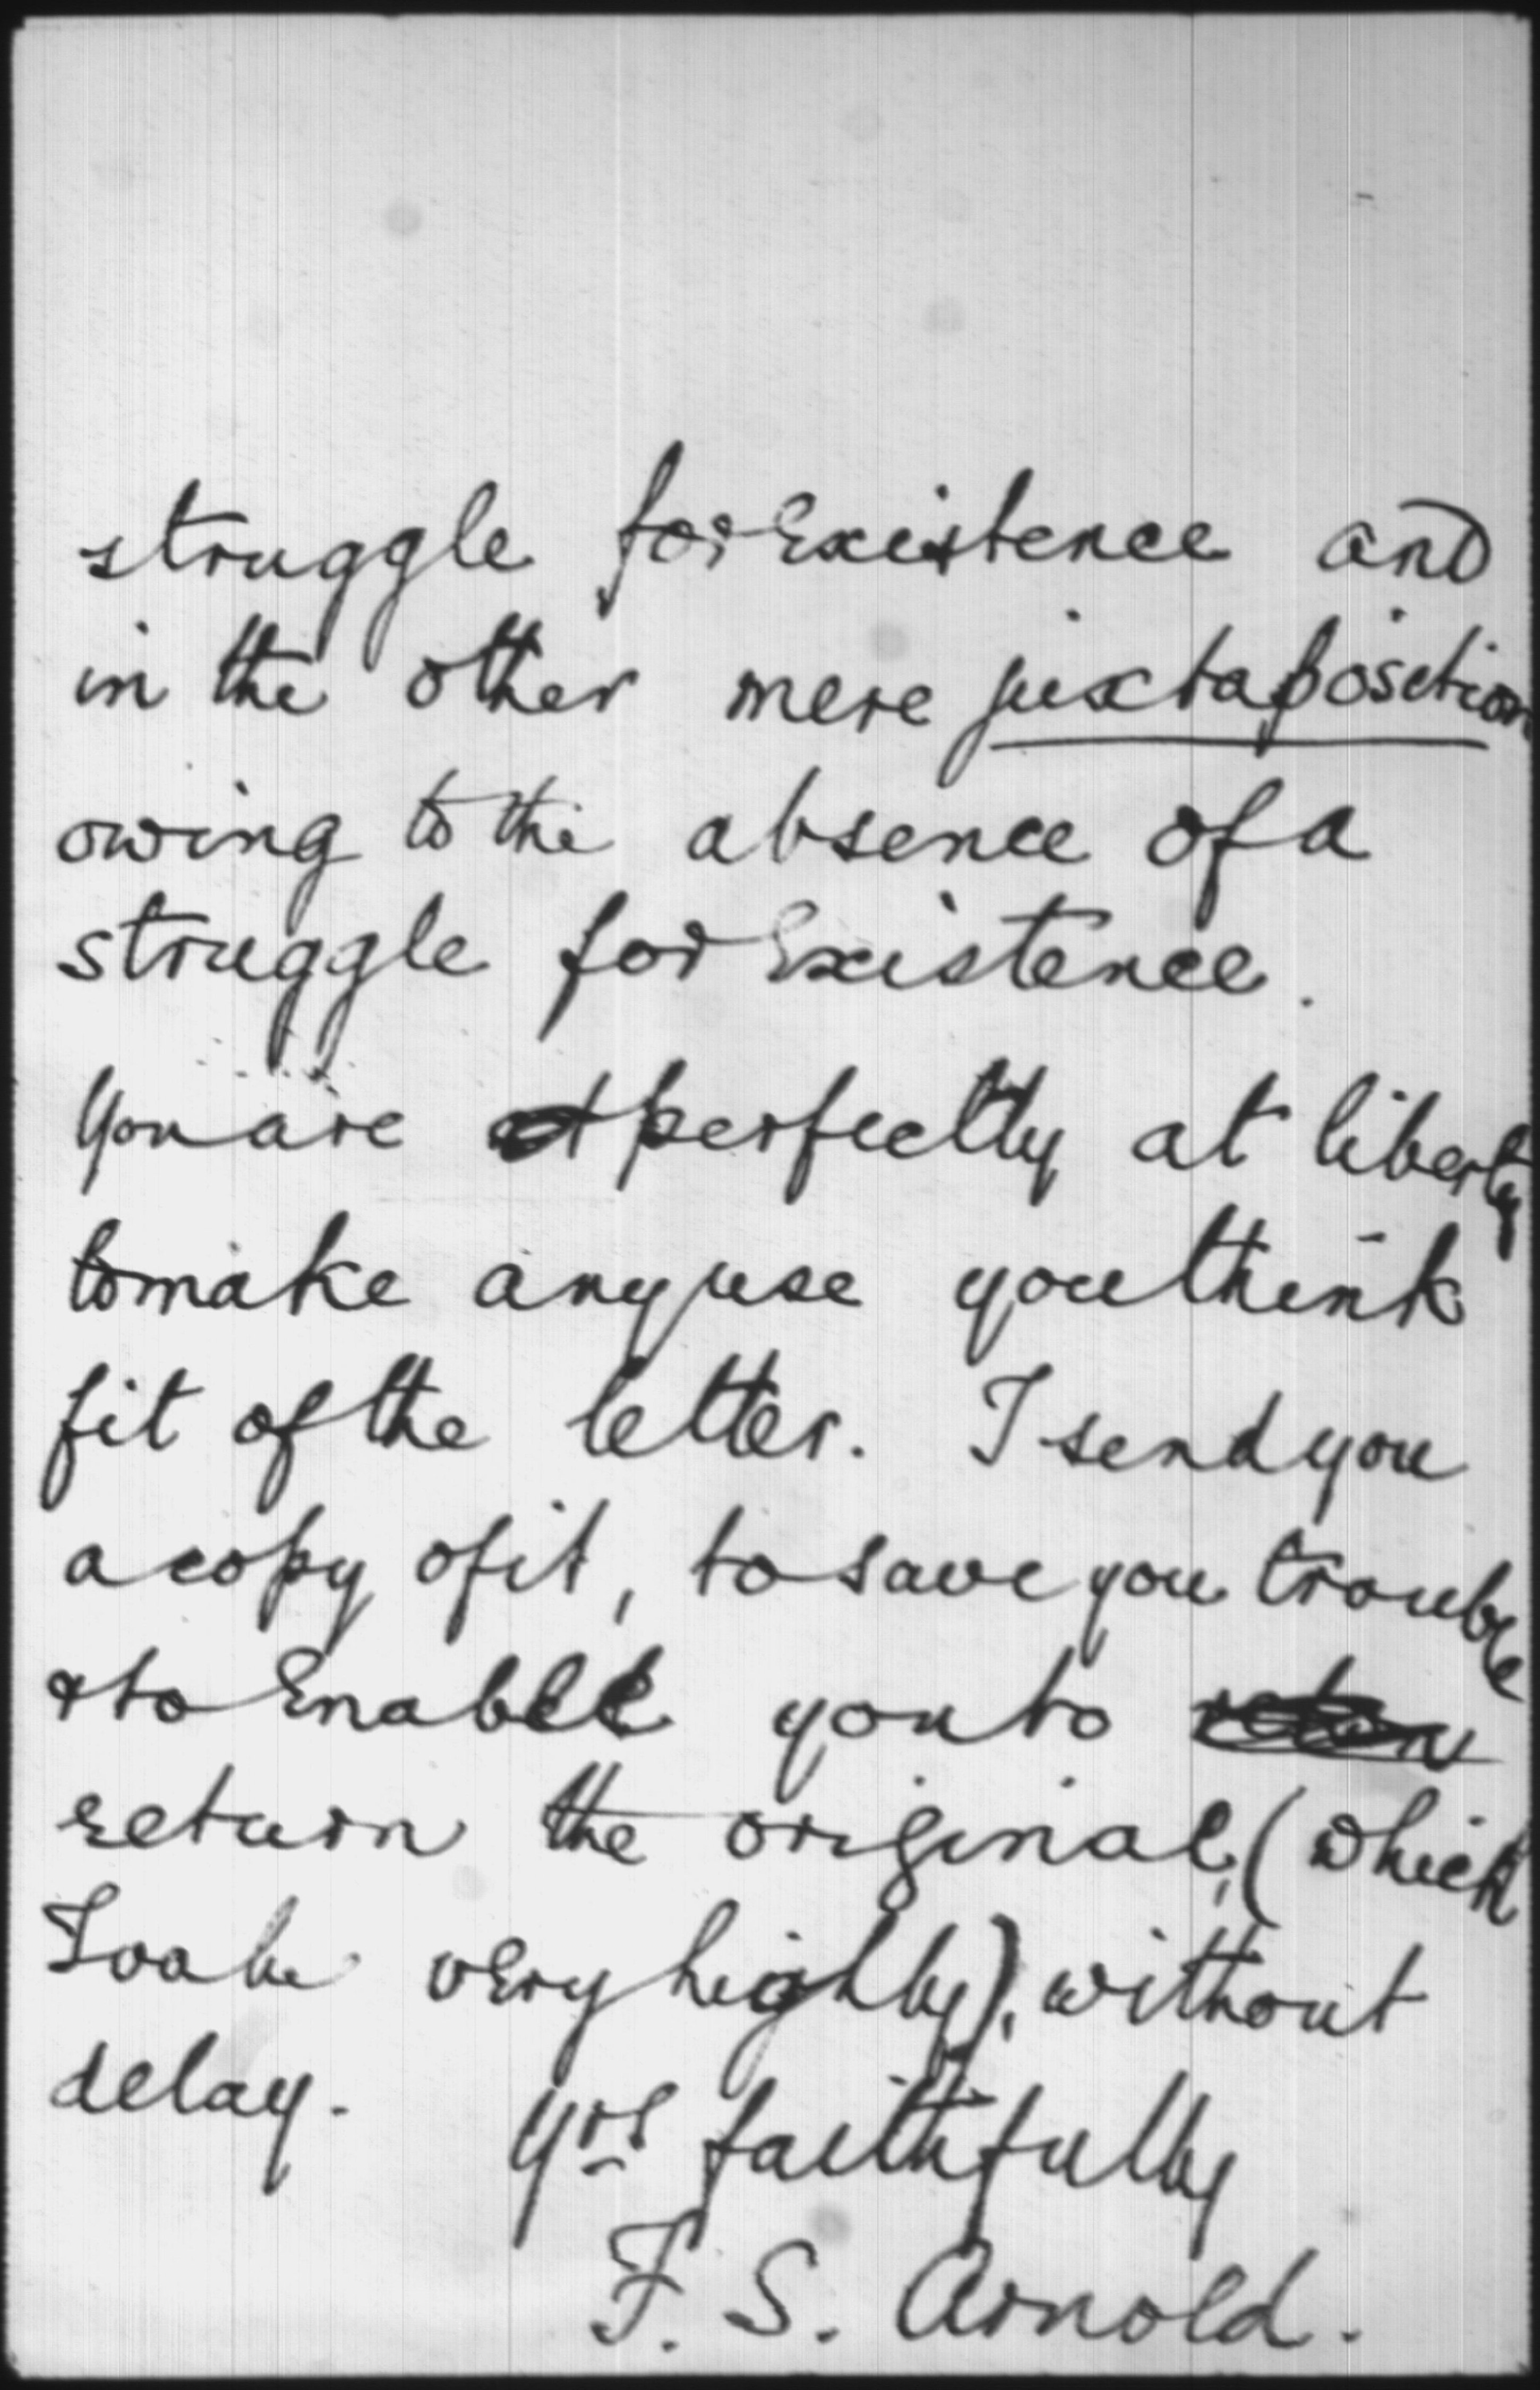 struggle for existence and
in the other mere juxtaposition
owing to the absence of a
struggle for existence.
You are at perfectly at liberty
to make any use you think
fit of the letter. I send you
a copy of it, to save you trouble
& to enable you to
return the original, (which
I value very highly), without
delay. Yrs faithfully
F. S. Arnold.